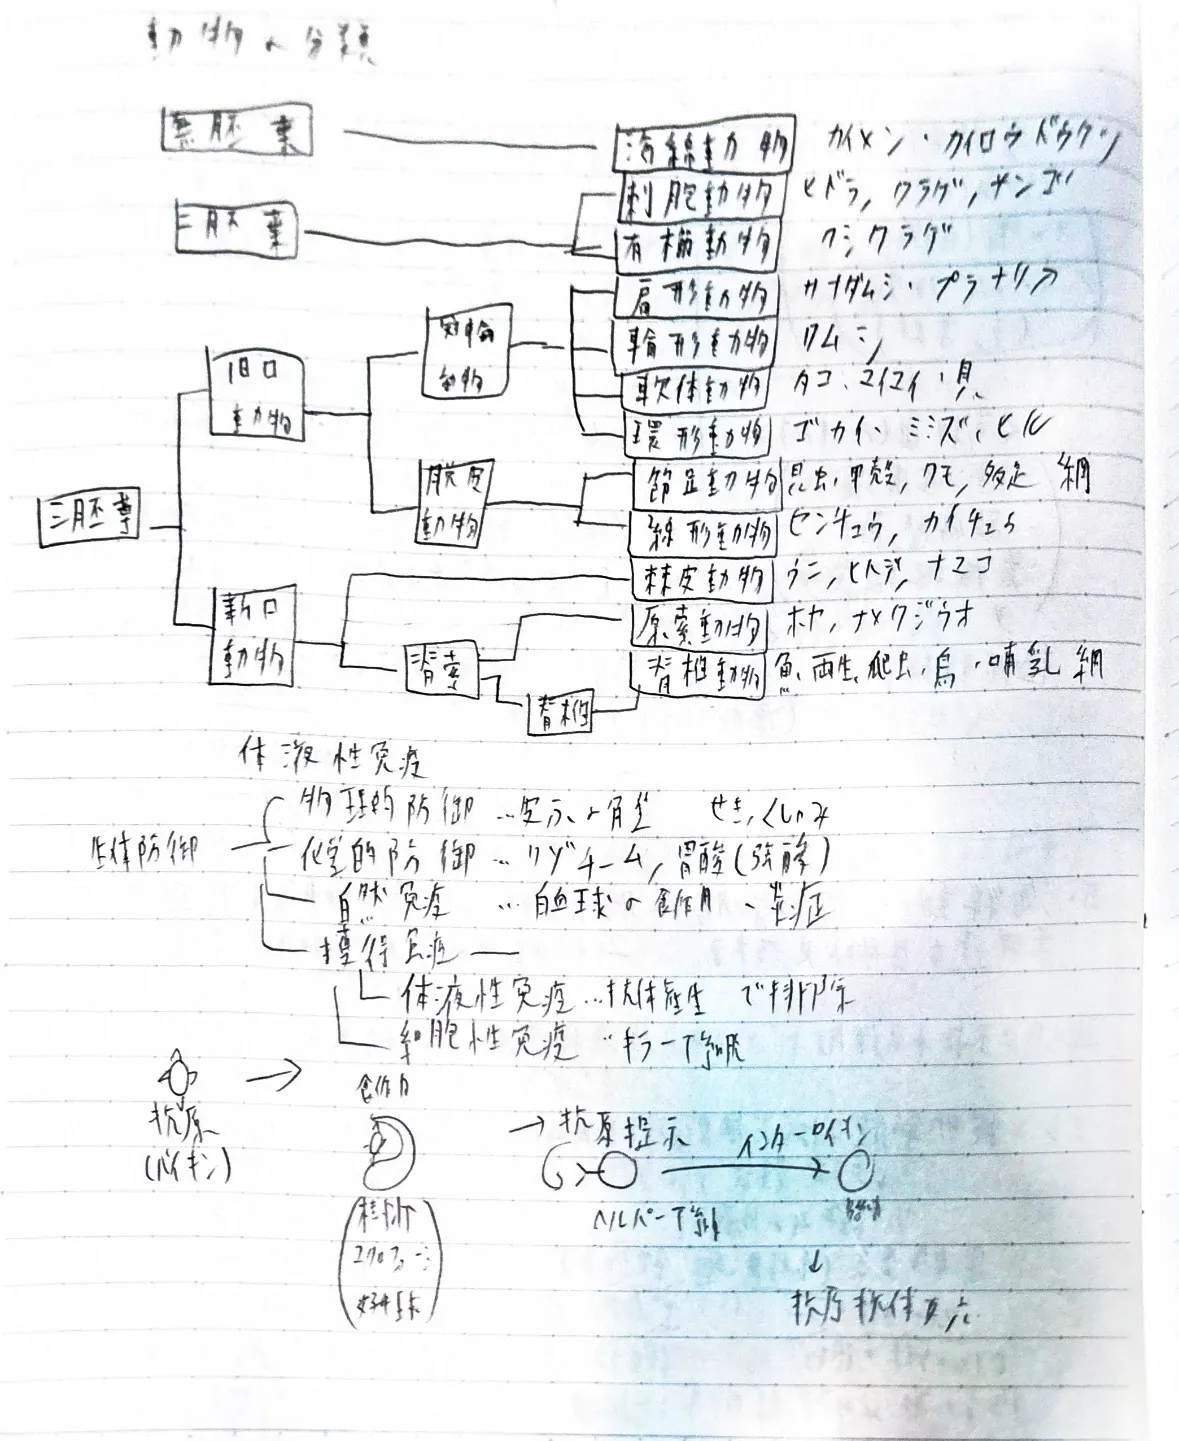 動物の分類
無胚葉 海綿動物 カイメン・カイロウドウケツ
二胚葉 刺胞動物 ヒドラ, クラゲ, サンゴ
有櫛動物 クシクラゲ
扁形動物 サナダムシ・プラナリア
冠輪動物 輪形動物 ワムシ
旧口動物 軟体動物 タコ、マイマイ・貝
環形動物 ゴカイ・ミミズ、ヒル
脱皮動物 節足動物 昆虫・甲殻, クモ, 多足 綱
三胚葉 線形動物 センチュウ, カイチュウ
棘皮動物 ウニ, ヒトデ, ナマコ
新口動物 原索動物 ホヤ, ナメクジウオ
脊索 脊椎動物 魚、両生、爬虫・鳥・哺乳 綱
脊椎
体液性免疫
物理的防御 …皮ふの角質 せき、くしゃみ
生体防御 化学的防御 … リゾチーム, 胃酸(強酸)
自然免疫 …白血球の食作用、炎症
獲得免疫
体液性免疫 …抗体産生 で排除
細胞性免疫 …キラーT細胞
食作用
抗原 → 抗原提示 インターロイキン
(バイキン)
ヘルパーT細
樹状
マクロファージ
好中球
↓
抗原抗体反応